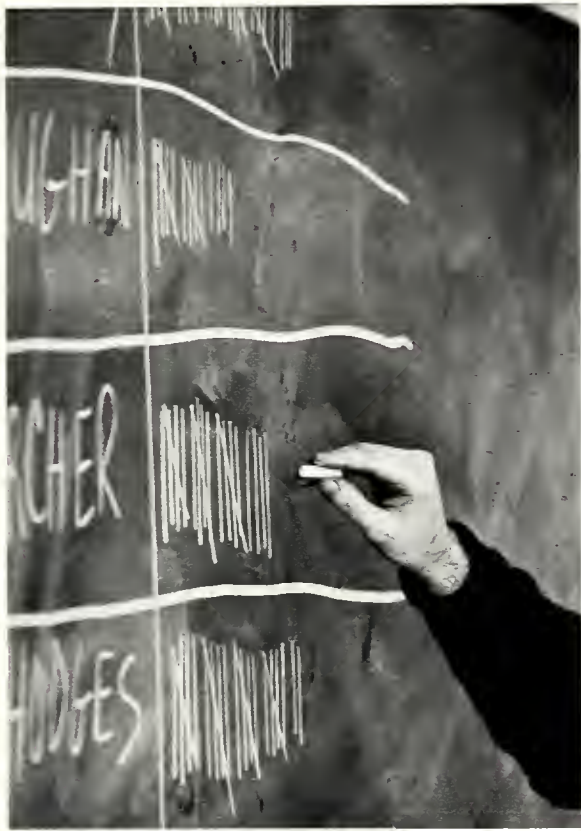 UGHAN
RCHER
HODGES